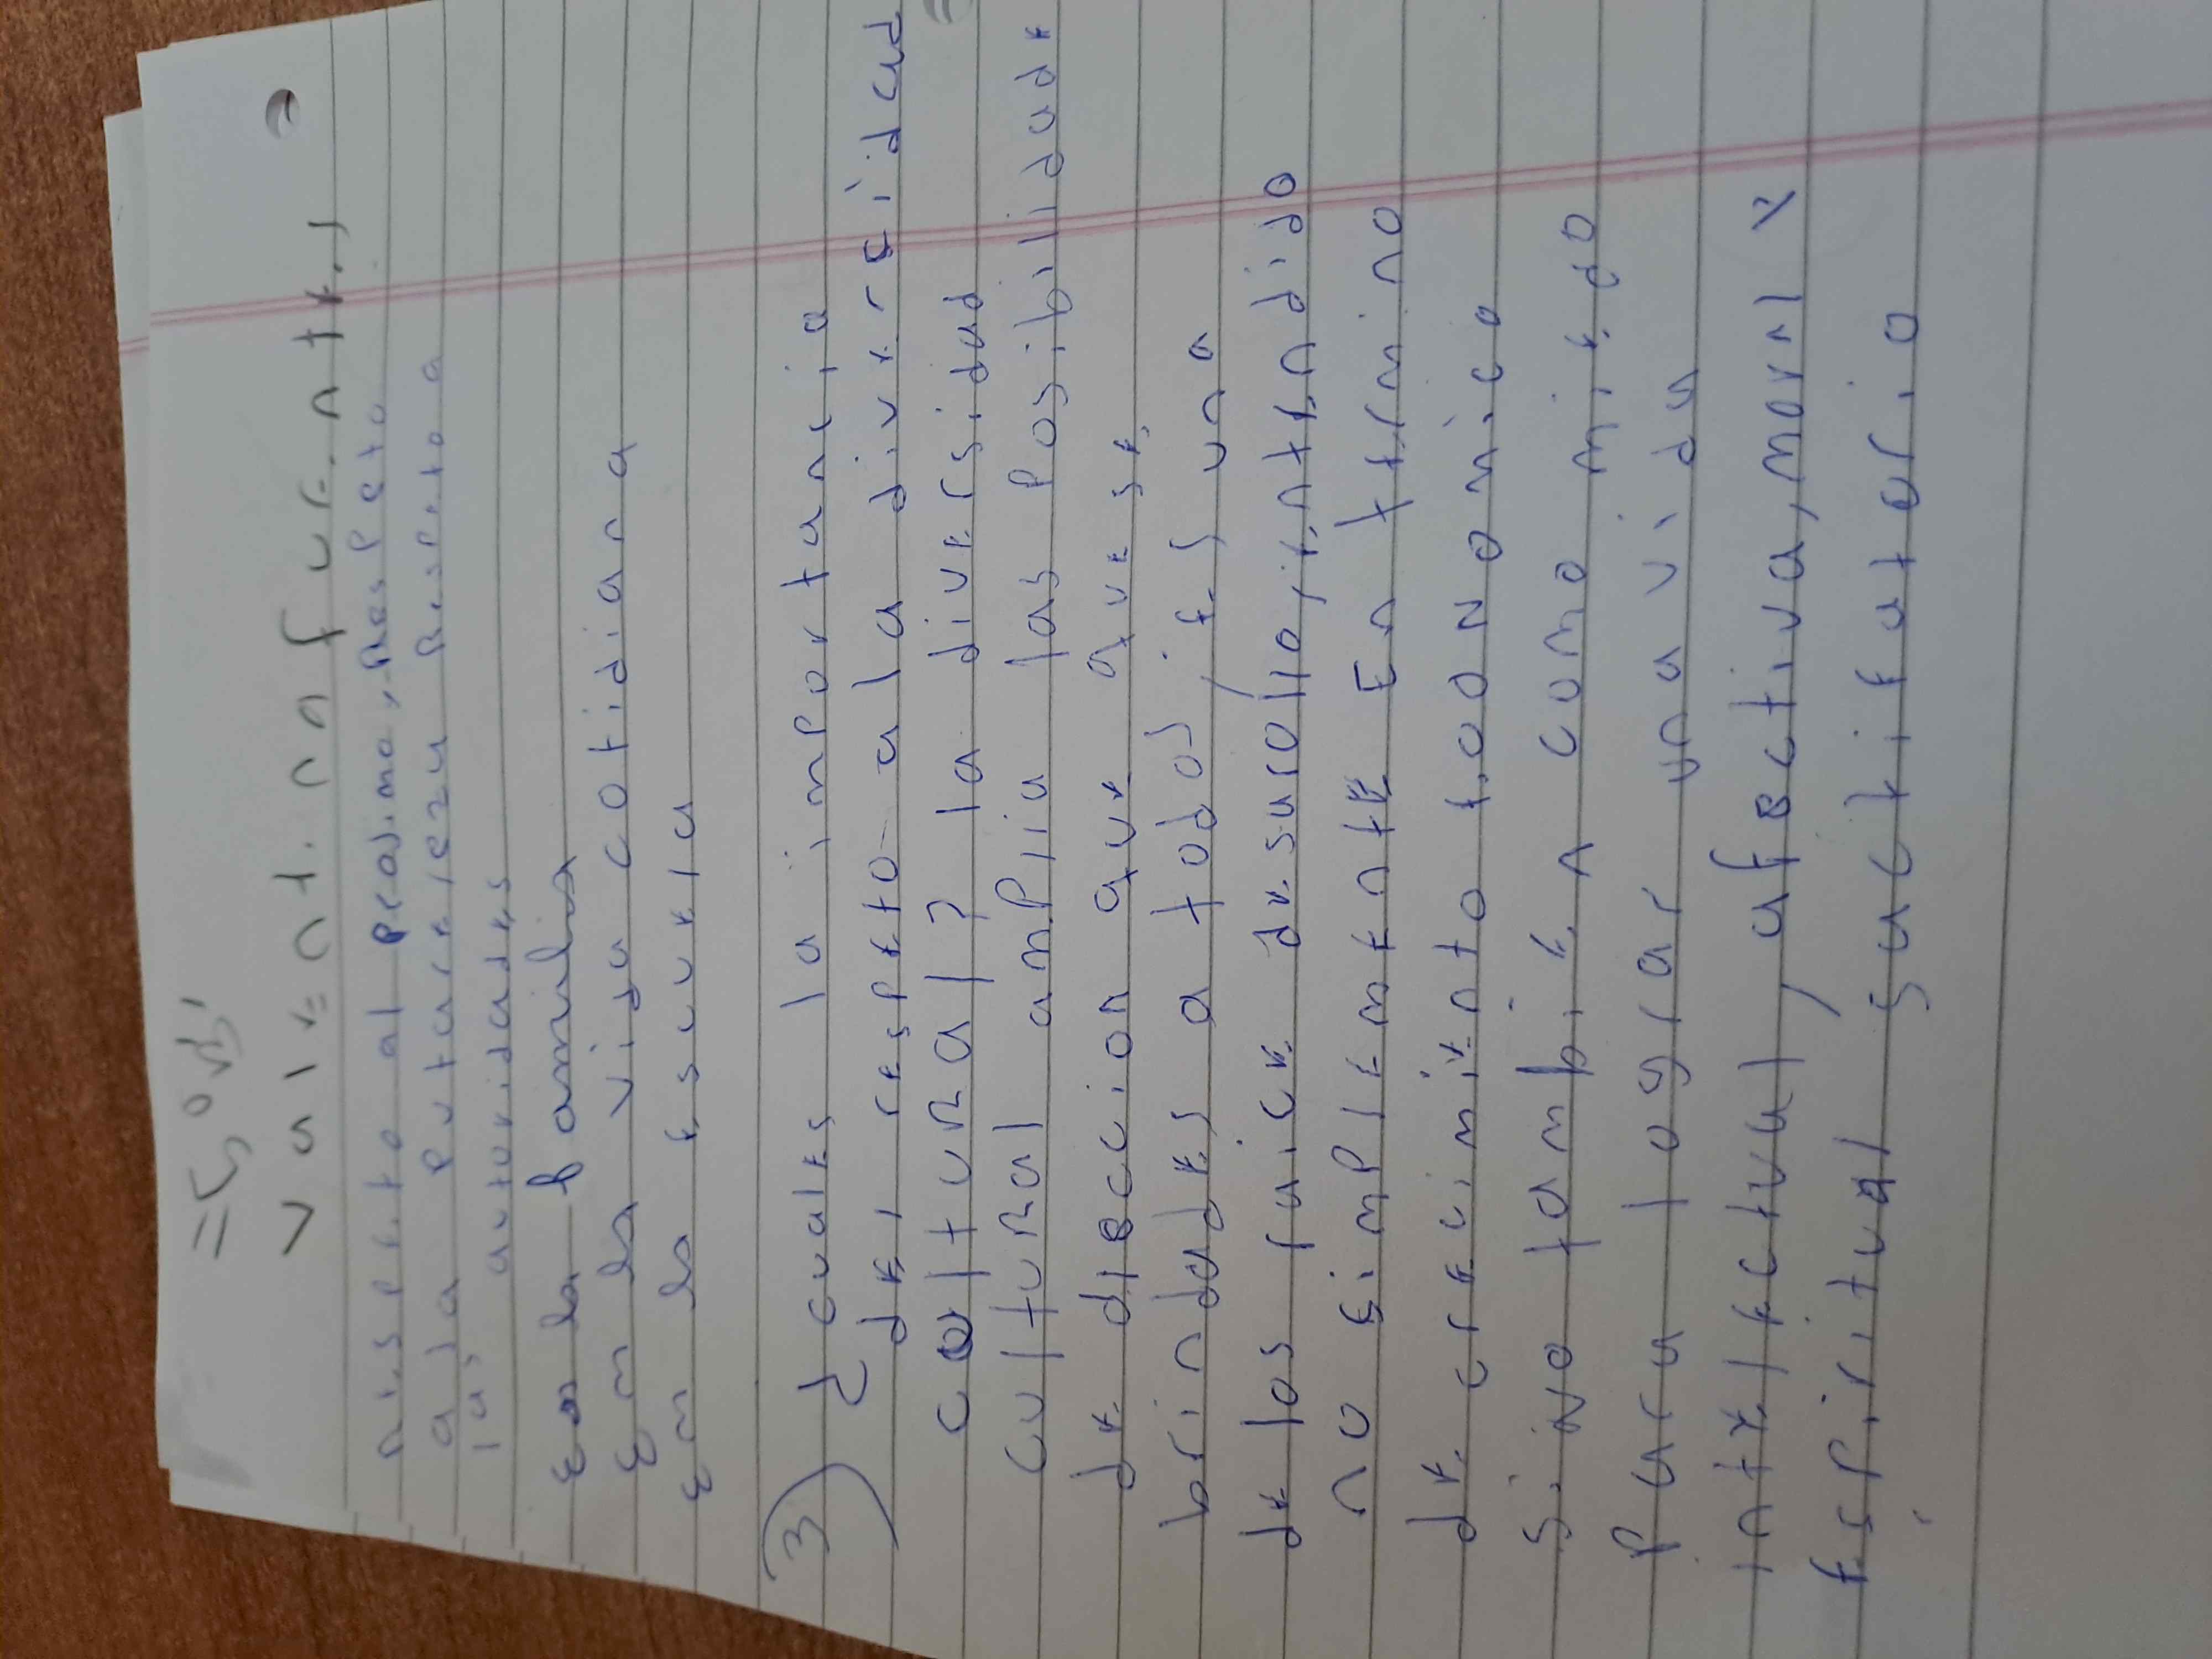 valentina fuentes
Respeto al procsimo, Respeto
a la nutaralezu Respeto a
las autoridades
En la familia
En la vida cotidiana
En la escuela
3) ¿cuales la importancia
del respeto a la diverscidad
coltuRal? la diversidad
cultuRal amplia las posibilidade
de dleccion que que se
brindades a todos; es una
de las raice desarollo, entendido
no simplemente En termino
de crecimiento econonomico
sino tambien como miedo
Para lograr una vida
intelectual, afectiva, moral y
espiritual sactifatorio